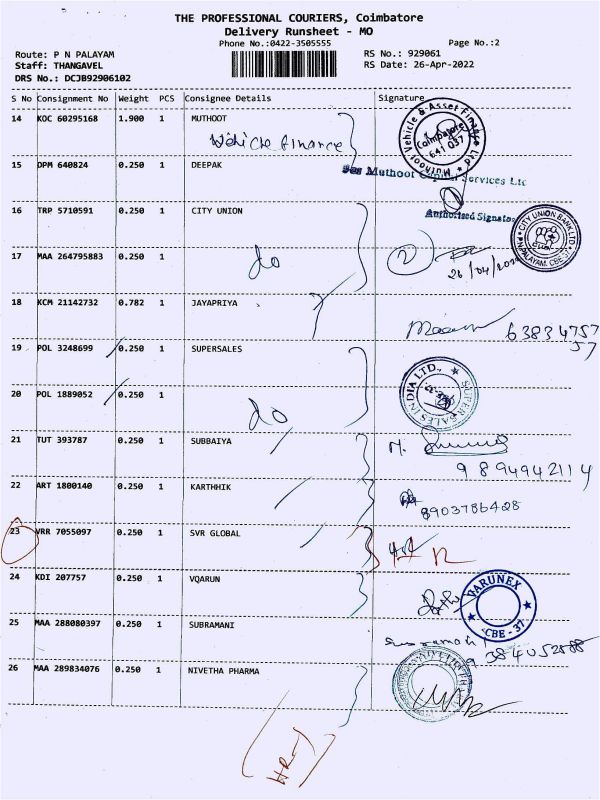 THE PROFESSIONAL COURIERS, Coimbatore
Delivery Runsheet - MO
Phone No.:0422-3505555
Page No.:2
Route: P N PALAYAM
RS No.: 929061
Staff: THANGAVEL
RS Date: 26-Apr-2022
DRS No.: DCJB92906102
S No Consignment No Weight PCS Consignee Details Signature
14 KOC 60295168 1.900 1 MUTHOOT
Vehicle finance
Muthoot Vehicle & Asset Finance Ltd
Coimbatore
641 037
15 DPM 640824 0.250 1 DEEPAK
Muthoot Capital Services Ltd
Authorised Signatory
16 TRP 5710591 0.250 1 CITY UNION
CITY UNION BANK LTD
P.N.PALAYAM, CBE-37
17 MAA 264795883 0.250 1
do
2
26/04/20
18 KCM 21142732 0.782 1 JAYAPRIYA
63834757
57
19 POL 3248699 0.250 1 SUPERSALES
SUPER SALES INDIA LTD.,
20 POL 1889052 0.250 1
do
21 TUT 393787 0.250 1 SUBBAIYA
9894942114
22 ART 1800140 0.250 1 KARTHHIK
8903786428
23 VRR 7055097 0.250 1 SVR GLOBAL
24 KDI 207757 0.250 1 VQARUN
VARUNEX
CBE - 37
25 MAA 288080397 0.250 1 SUBRAMANI
9384052888
26 MAA 289834076 0.250 1 NIVETHA PHARMA